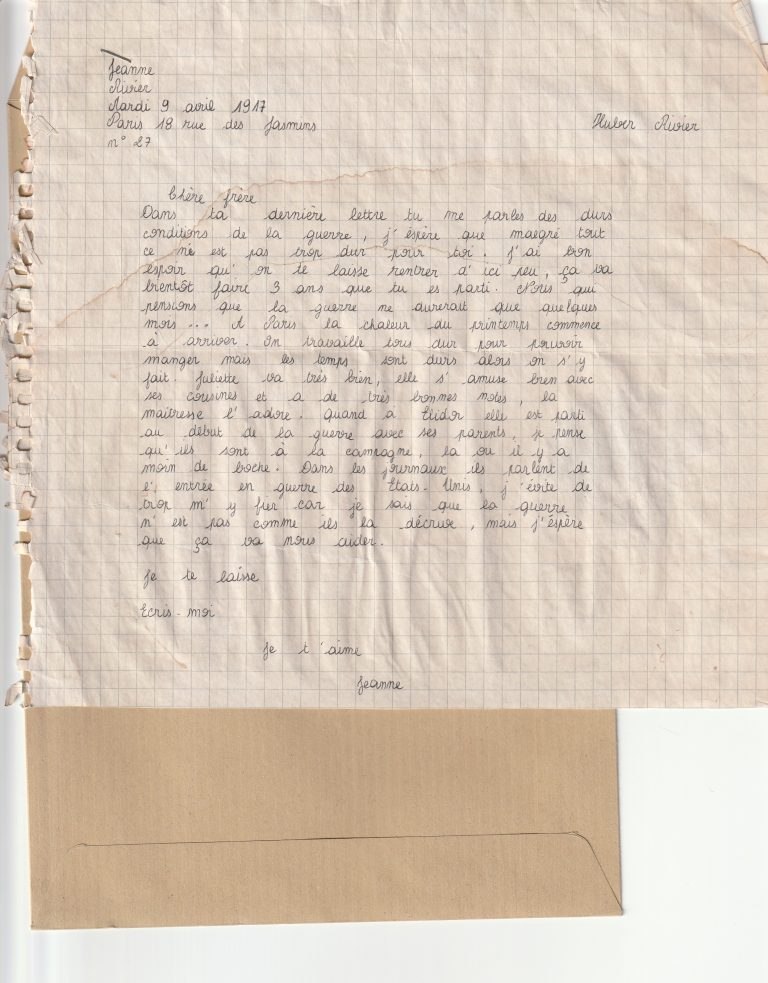 Jeanne
Rivier
Mardi 9 avril 1917
Paris 18 rue des Jasmins
Huber Rivier
n° 27
Chère frère
Dans ta dernière lettre tu me parles des durs
conditions de la guerre, j'éspère que malgré tout
ce né est pas trop dur pour toi. J'ai bon
espoir qu'on te laisse rentrer d'ici peu, ça va
bientôt faire 3 ans que tu es parti. Nous qui
pensions que la guerre ne durerait que quelques
mois... A Paris la chaleur du printemps commence
à arriver. On travaille tous dur pour pouvoir
manger mais les temps sont durs alors on s'y
fait. Juliette va très bien, elle s'amuse bien avec
ses cousines et a de très bonnes notes, la
maitresse l'adore. Quand à Elidor elle est parti
au début de la guerre avec ses parents, je pense
qu'ils sont à la campagne, la ou il y a
moin de boche. Dans les journaux ils parlent de
l'entrée en guerre des Etats-Unis, j'évite de
trop m'y fier car je sais que la guerre
n'est pas comme ils la décrive, mais j'éspère
que ça va nous aider.
Je te laisse
Ecris-moi
Je t'aime
Jeanne